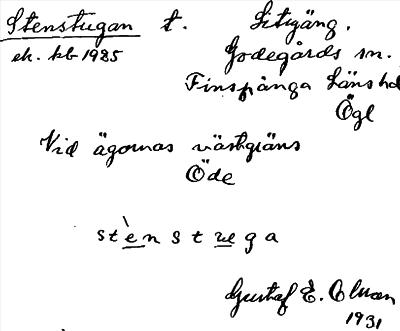 Stenstugan t. Sitigäng,
ek. kb 1925 Godegårds sn.
Finspånga länshd
Ögl
Vid ägornas västgräns
Öde
stènstuga
Gustaf E. Olman
1931